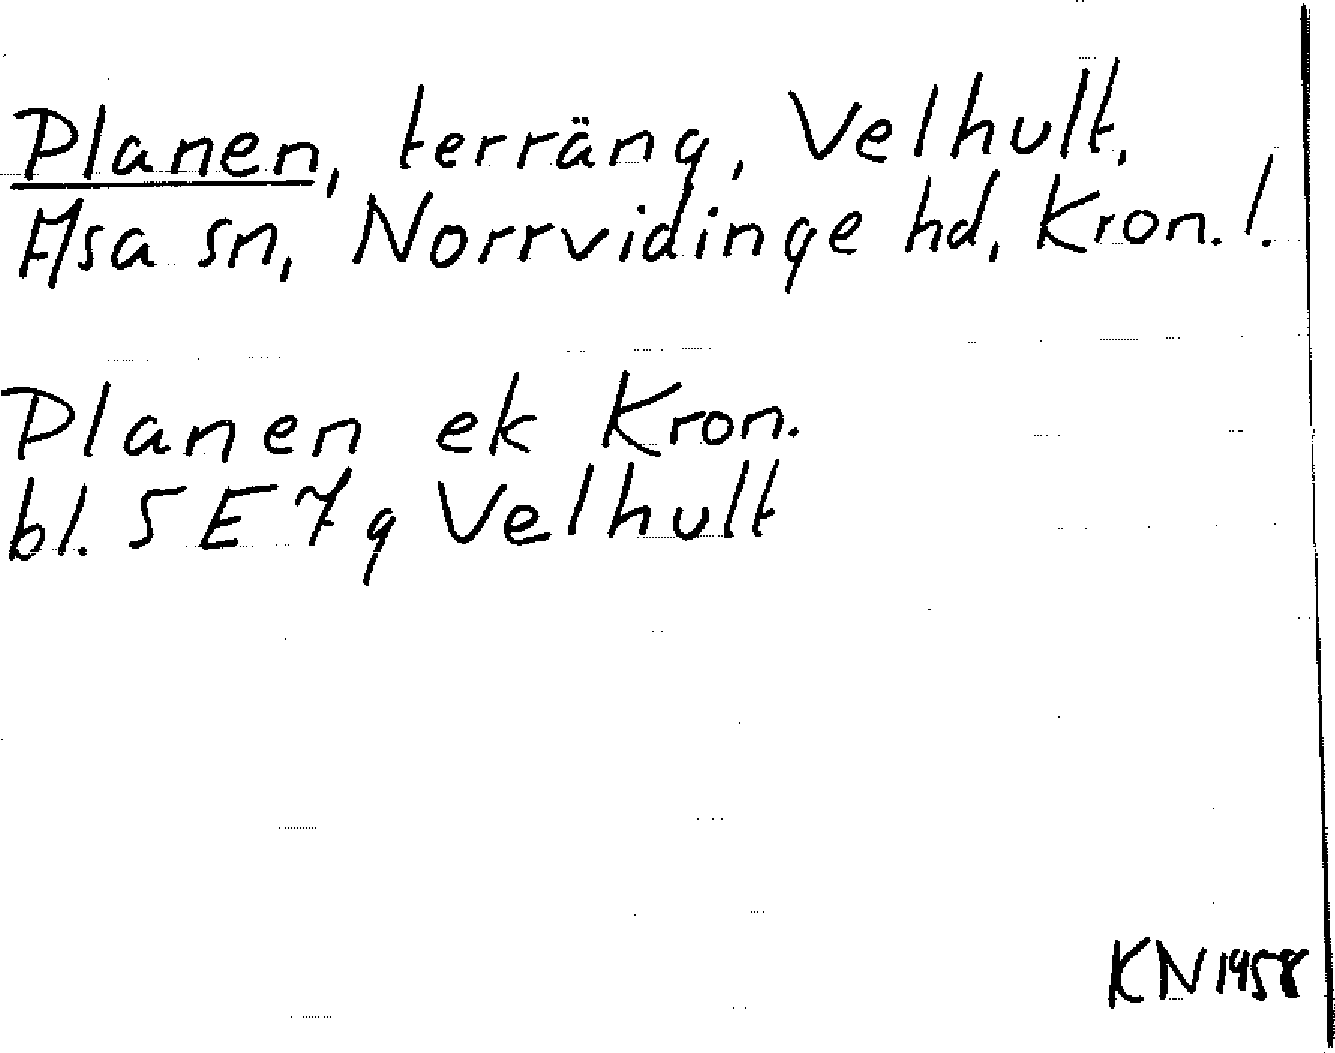 Planen, terräng, Velhult,
Asa sn, Norrvidinge hd, Kron. l.
Planen ek Kron.
bl. 5 E 7 g Velhult
KN 1958